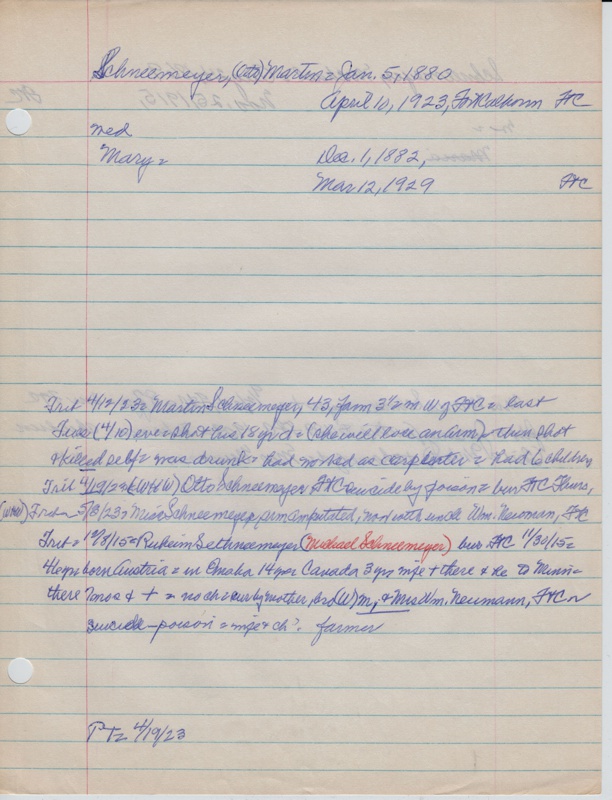 Schneemeyer, (Otto) Martin = Jan. 5, 1880
April 10, 1923, Fort Calhoun FtC
med
Mary = Dec. 1, 1882,
Mar 12, 1929 FtC
Trib 4/12/23 = Martin Schneemeyer, 43, farm 3½ m W of FtC = last
Tues (4/10) eve = shot his 18 yr d = (she will lose an arm) = then shot
& killed self = was drunk = had worked as carpenter = had 6 children
Trib 4/19/23 = Otto Schneemeyer FtC suicide by poison = bur FtC Thurs,
5/3/23 = Miss Schneemeyer, arm amputated, now with uncle Wm. Neuman, FtC
Trib = 12/8/15 = Schneemeyer (Michael Schneemeyer) bur FtC 11/30/15 =
born Austria = in Omaha 14 yrs Canada 3 yrs there & to Minn =
there & + = no ch = mother, bro (W) M, & Mrs Wm. Neumann, FtC
suicide - poison = & ch. farmer
PT = 4/19/23